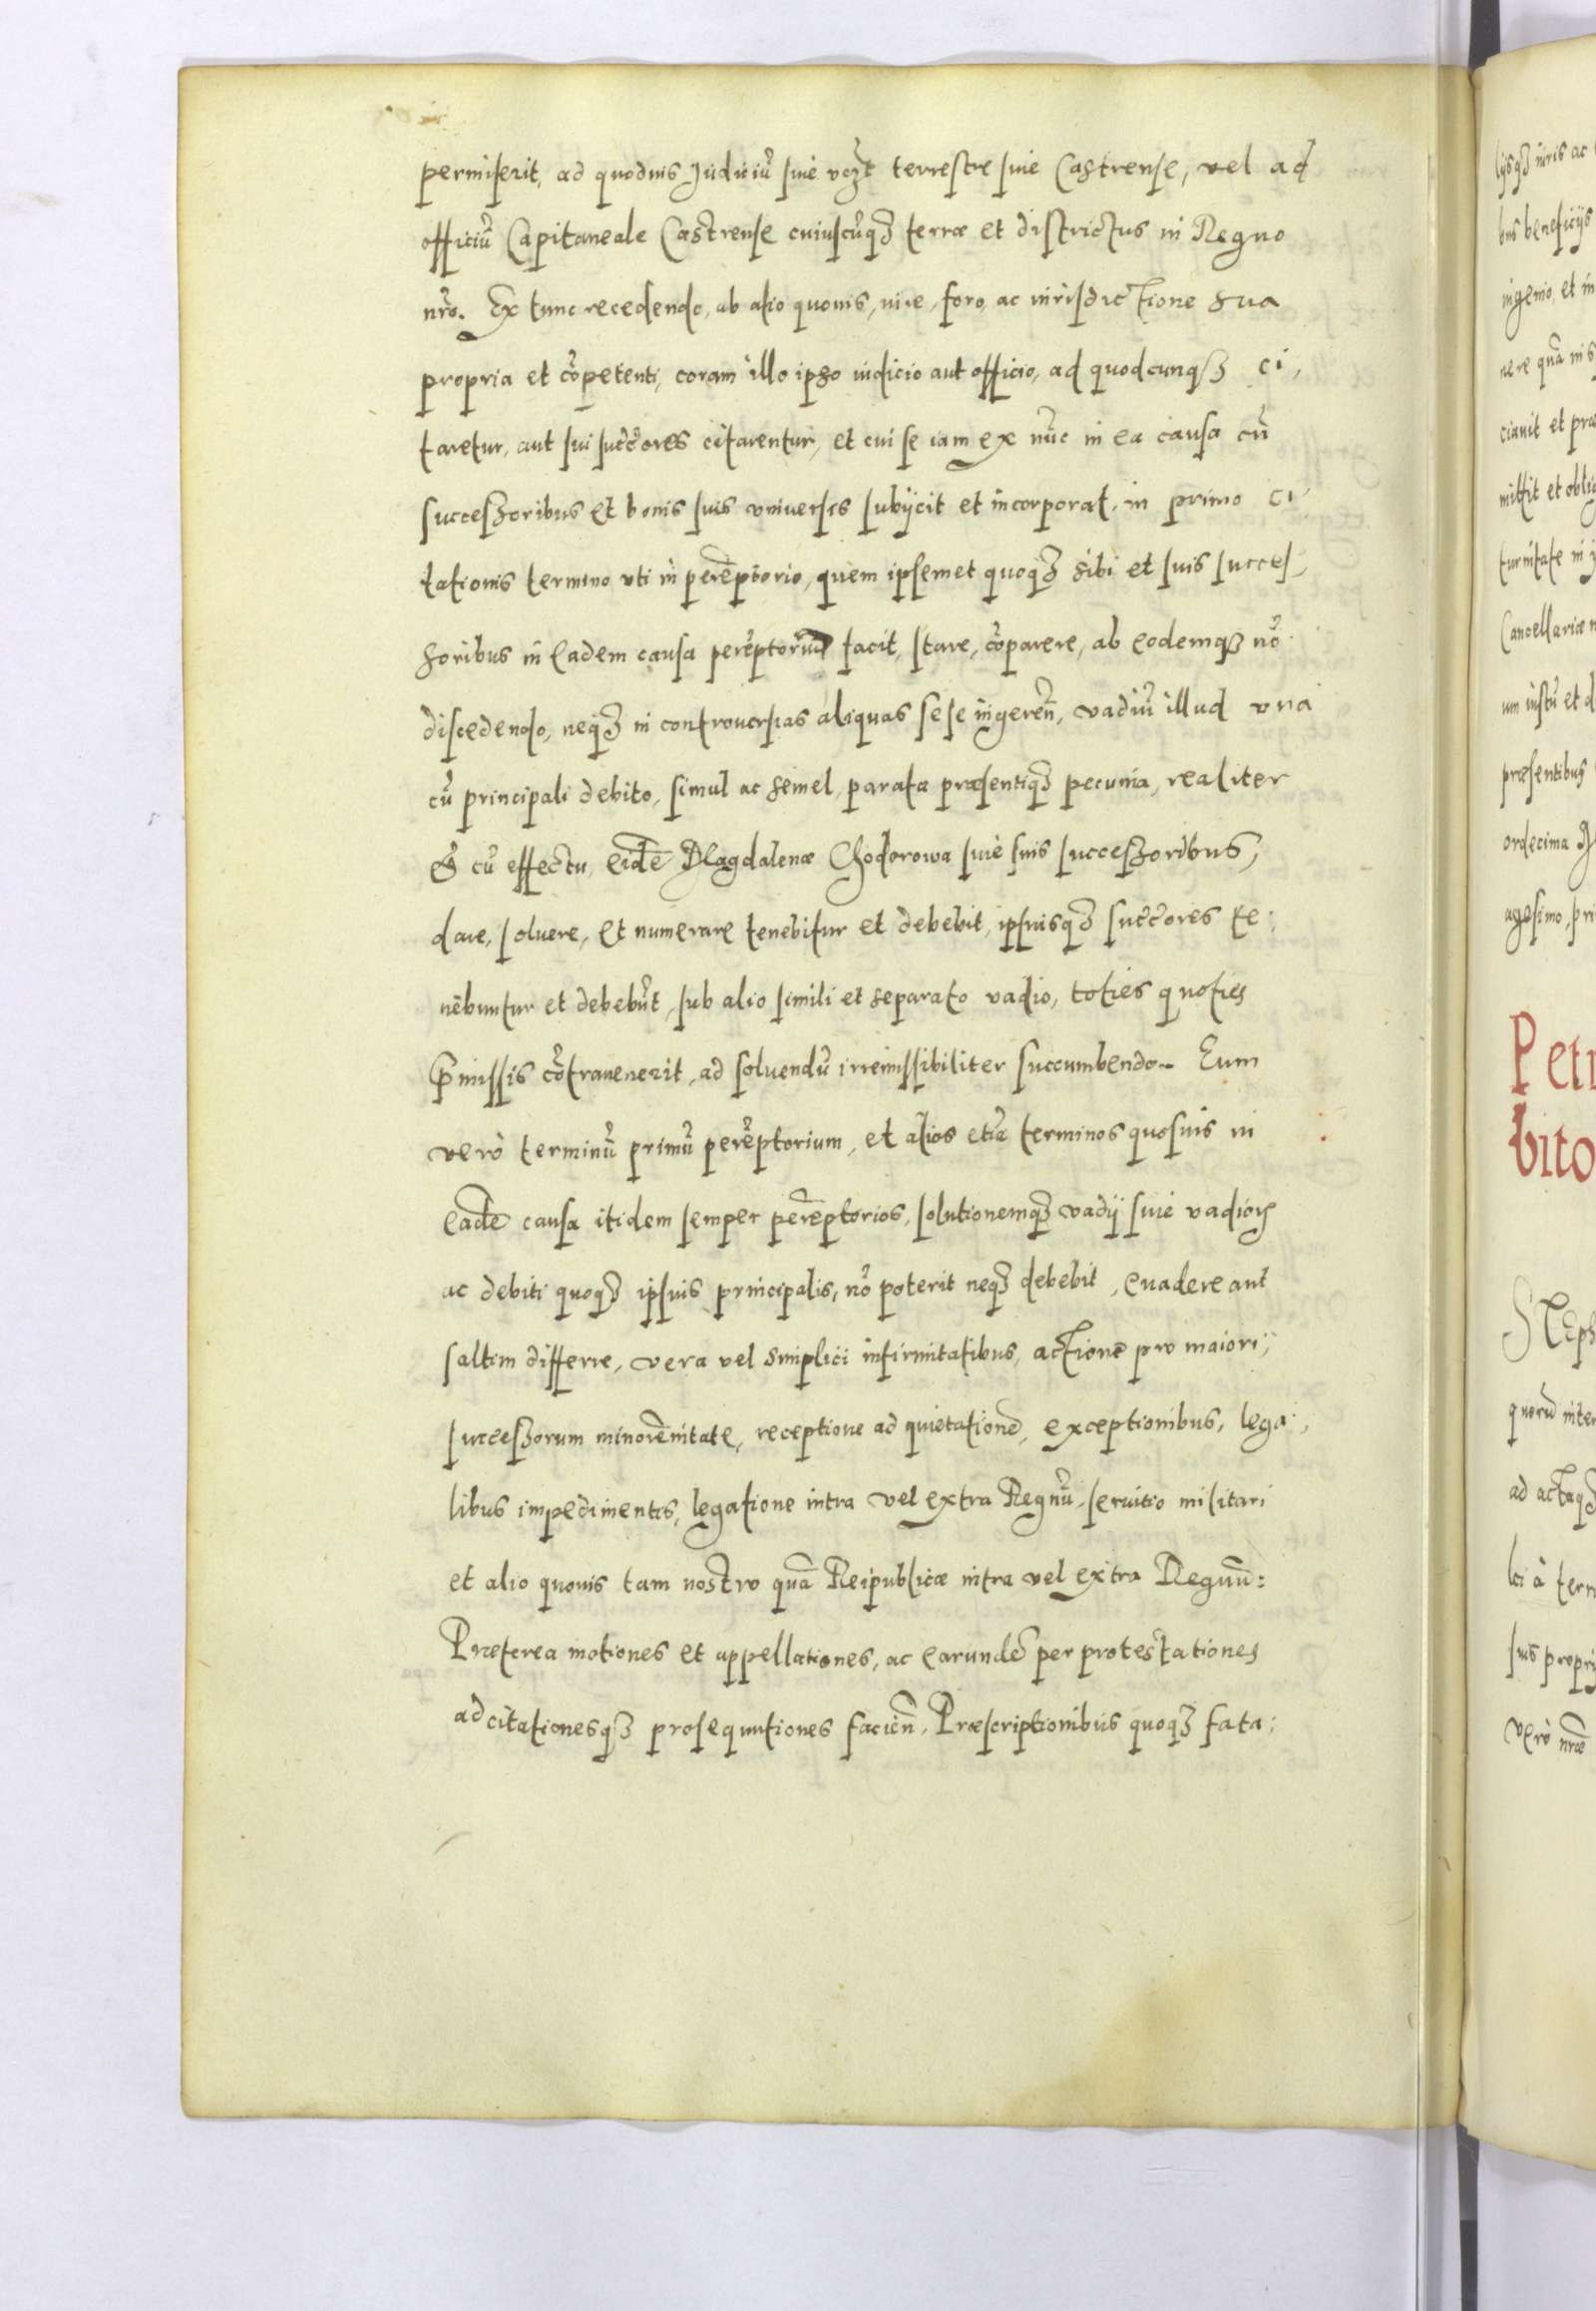 permiserit, ad quoduis Judiciũ siue vczt terrestre siue Castrense, vel ad
officiũ Capitaneale Castrense cuiuscũq₃ terræ et districtus in Regno
nr̃o. Ex tunc recedendo, ab alio quouis, iure, foro, ac iurisdictione sua
propria et cõpetenti, coram illo ipso iudicio aut officio, ad quodcunq₃ ci,
taretur, aut sui succ̃ores citarentur, et cui se iam ex nũc in ea causa cũ
successoribus et bonis suis vniuersis subijcit et incorporat, in primo ci,
tationis termino vti in perẽptorio, quem ipsemet quoq₃ sibi et suis succes,
soribus in eadem causa perẽptoriũ facit, stare, cõparere, ab eodemq₃ nõ
discedendo, neq₃ in controuersias aliquas sese ingerẽn, vadiũ illud vna
cũ principali debito, simul ac semel, parata præsentiq₃ pecunia, realiter
& cũ effectu, eidẽ Magdalenæ Chodorowa siue suis successoribus,
dare, soluere, et numerare tenebitur et debebit, ipsiusq₃ succ̃ores te,
nebuntur et debebũt, sub alio simili et separato vadio, toties quoties
p̃missis cõtrauenerit, ad soluendũ irremissibiliter succumbendo. Eum
verò terminũ primũ perẽptorium, et alios etiã terminos quosuis in
eadẽ causa itidem semper perẽptorios, solutionemq₃ vadij siue vadioꝝ
ac debiti quoq₃ ipsius principalis, nõ poterit neq₃ debebit, euadere aut
saltim differre, vera vel simplici infirmitatibus, actione pro maiori,
successorum minorẽnitate, receptione ad quietationẽ, exceptionibus, lega,
libus impedimentis, legatione intra vel extra Regnũ, seruitio militari
et alio quouis tam nostro quã Reipublicæ intra vel extra Regnũ:
Præterea motiones et appellationes, ac earundẽ per protestationes
adcitationesq₃ prosequutiones faciẽn, Præscriptionibus quoq₃ fata,
lijsq₃ iuris ac
bus beneficijs
ingenio, et in
nere quã in s
ciauit et præ
mittit et oblig
turnitate in
Cancellariæ n
præsentibus
ordecima
agesimo, pri
Petr
bito
Steph
quorũ inter
ad actaq₃
lci à terr
suis propri
Verò nr̃æ